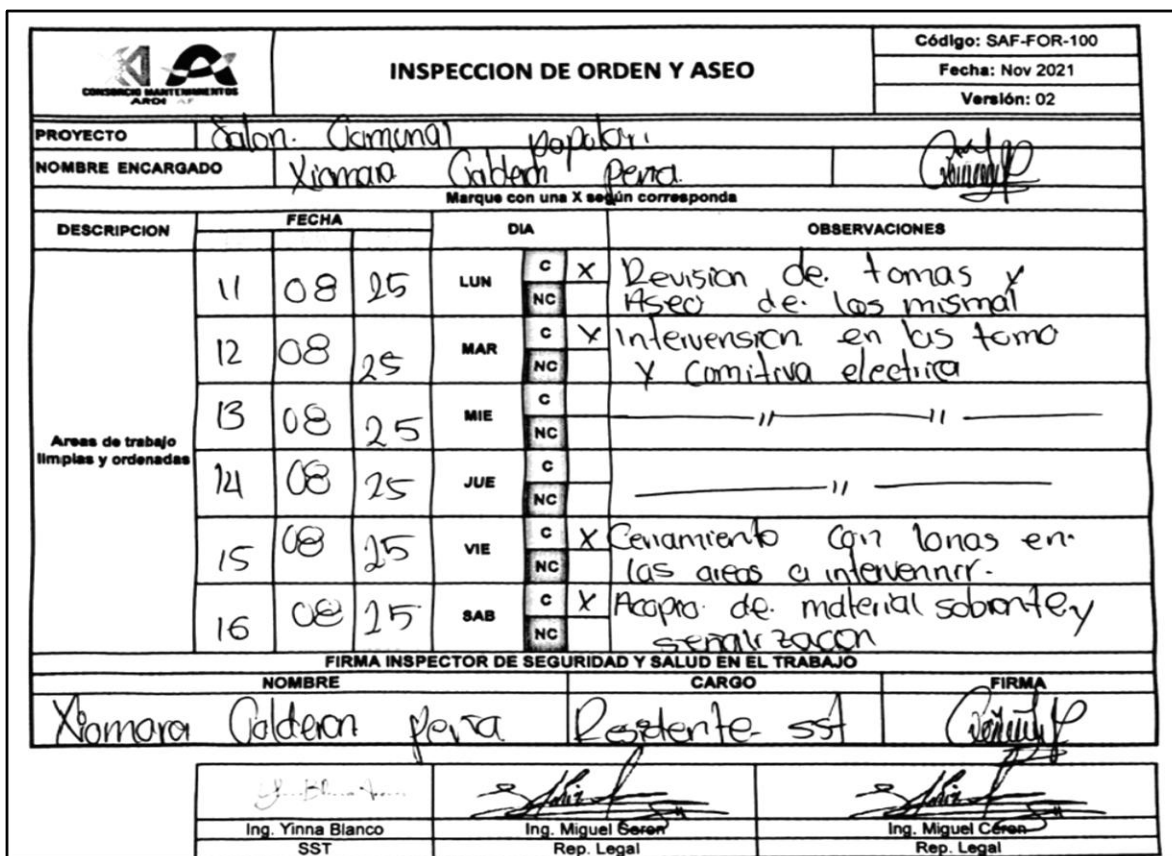 CONSORCIO MANTENIMIENTOS
INSPECCION DE ORDEN Y ASEO
Código: SAF-FOR-100
Fecha: Nov 2021
Versión: 02
PROYECTO Salon. Comunal
NOMBRE ENCARGADO Xiomara Calderon
Marque con una X según corresponda
DESCRIPCION FECHA DIA OBSERVACIONES
Areas de trabajo
limpias y ordenadas
11 08 25 LUN C X Revision de. tomas y
NC Aseo de. las mismal
12 08 25 MAR C X Intervension en las toma
NC y comitiva electrica
13 08 25 MIE C
NC
14 08 25 JUE C
NC
15 08 25 VIE C X Cerramiento con lonas en.
NC las areas a intervennir.
16 08 25 SAB C X Acopio. de. material sobrante y
NC señalizacon
FIRMA INSPECTOR DE SEGURIDAD Y SALUD EN EL TRABAJO
NOMBRE CARGO FIRMA
Xiomara Calderon Residente sst
Ing. Yinna Blanco Ing. Miguel Ceron Ing. Miguel Ceron
SST Rep. Legal Rep. Legal